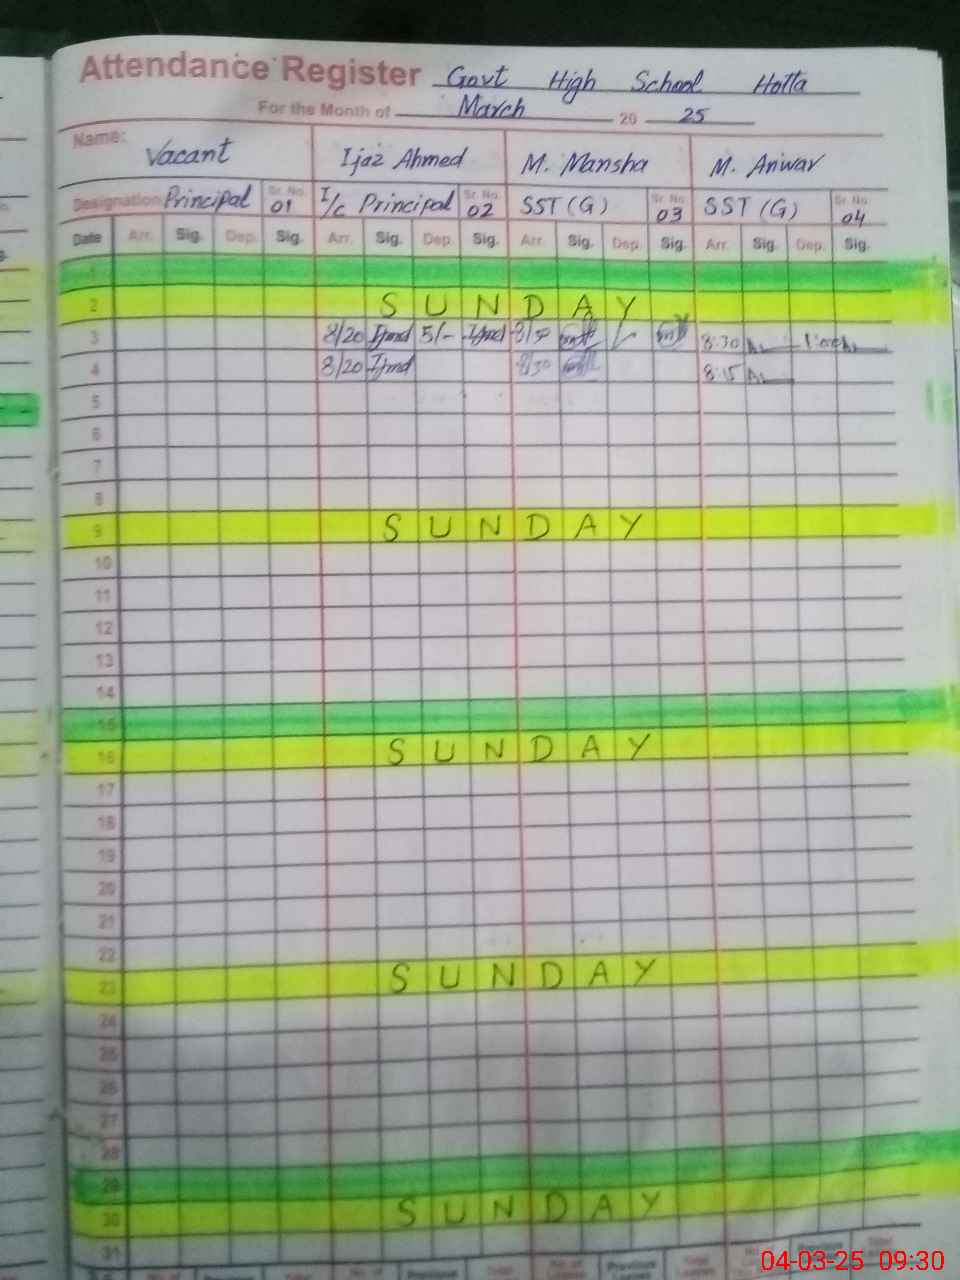 Attendance Register Govt High School Hotla
For the Month of March 20 25
Name: Vacant Ijaz Ahmed M. Mansha M. Anwar
Designation Principal Sr. No. 01 I/c Principal Sr. No. 02 SST (G) Sr. No. 03 SST (G) Sr. No. 04
Date Arr. Sig. Dep. Sig. Arr. Sig. Dep. Sig. Arr. Sig. Dep. Sig. Arr. Sig. Dep. Sig.
1
2 SUNDAY
3 8/20 5/- 8/30 8:30
4 8/20 8/30 8:15
5
6
7
8
9 SUNDAY
10
11
12
13
14
15
16 SUNDAY
17
18
19
20
21
22
23 SUNDAY
24
25
26
27
28
29
30 SUNDAY
31
04-03-25 09:30